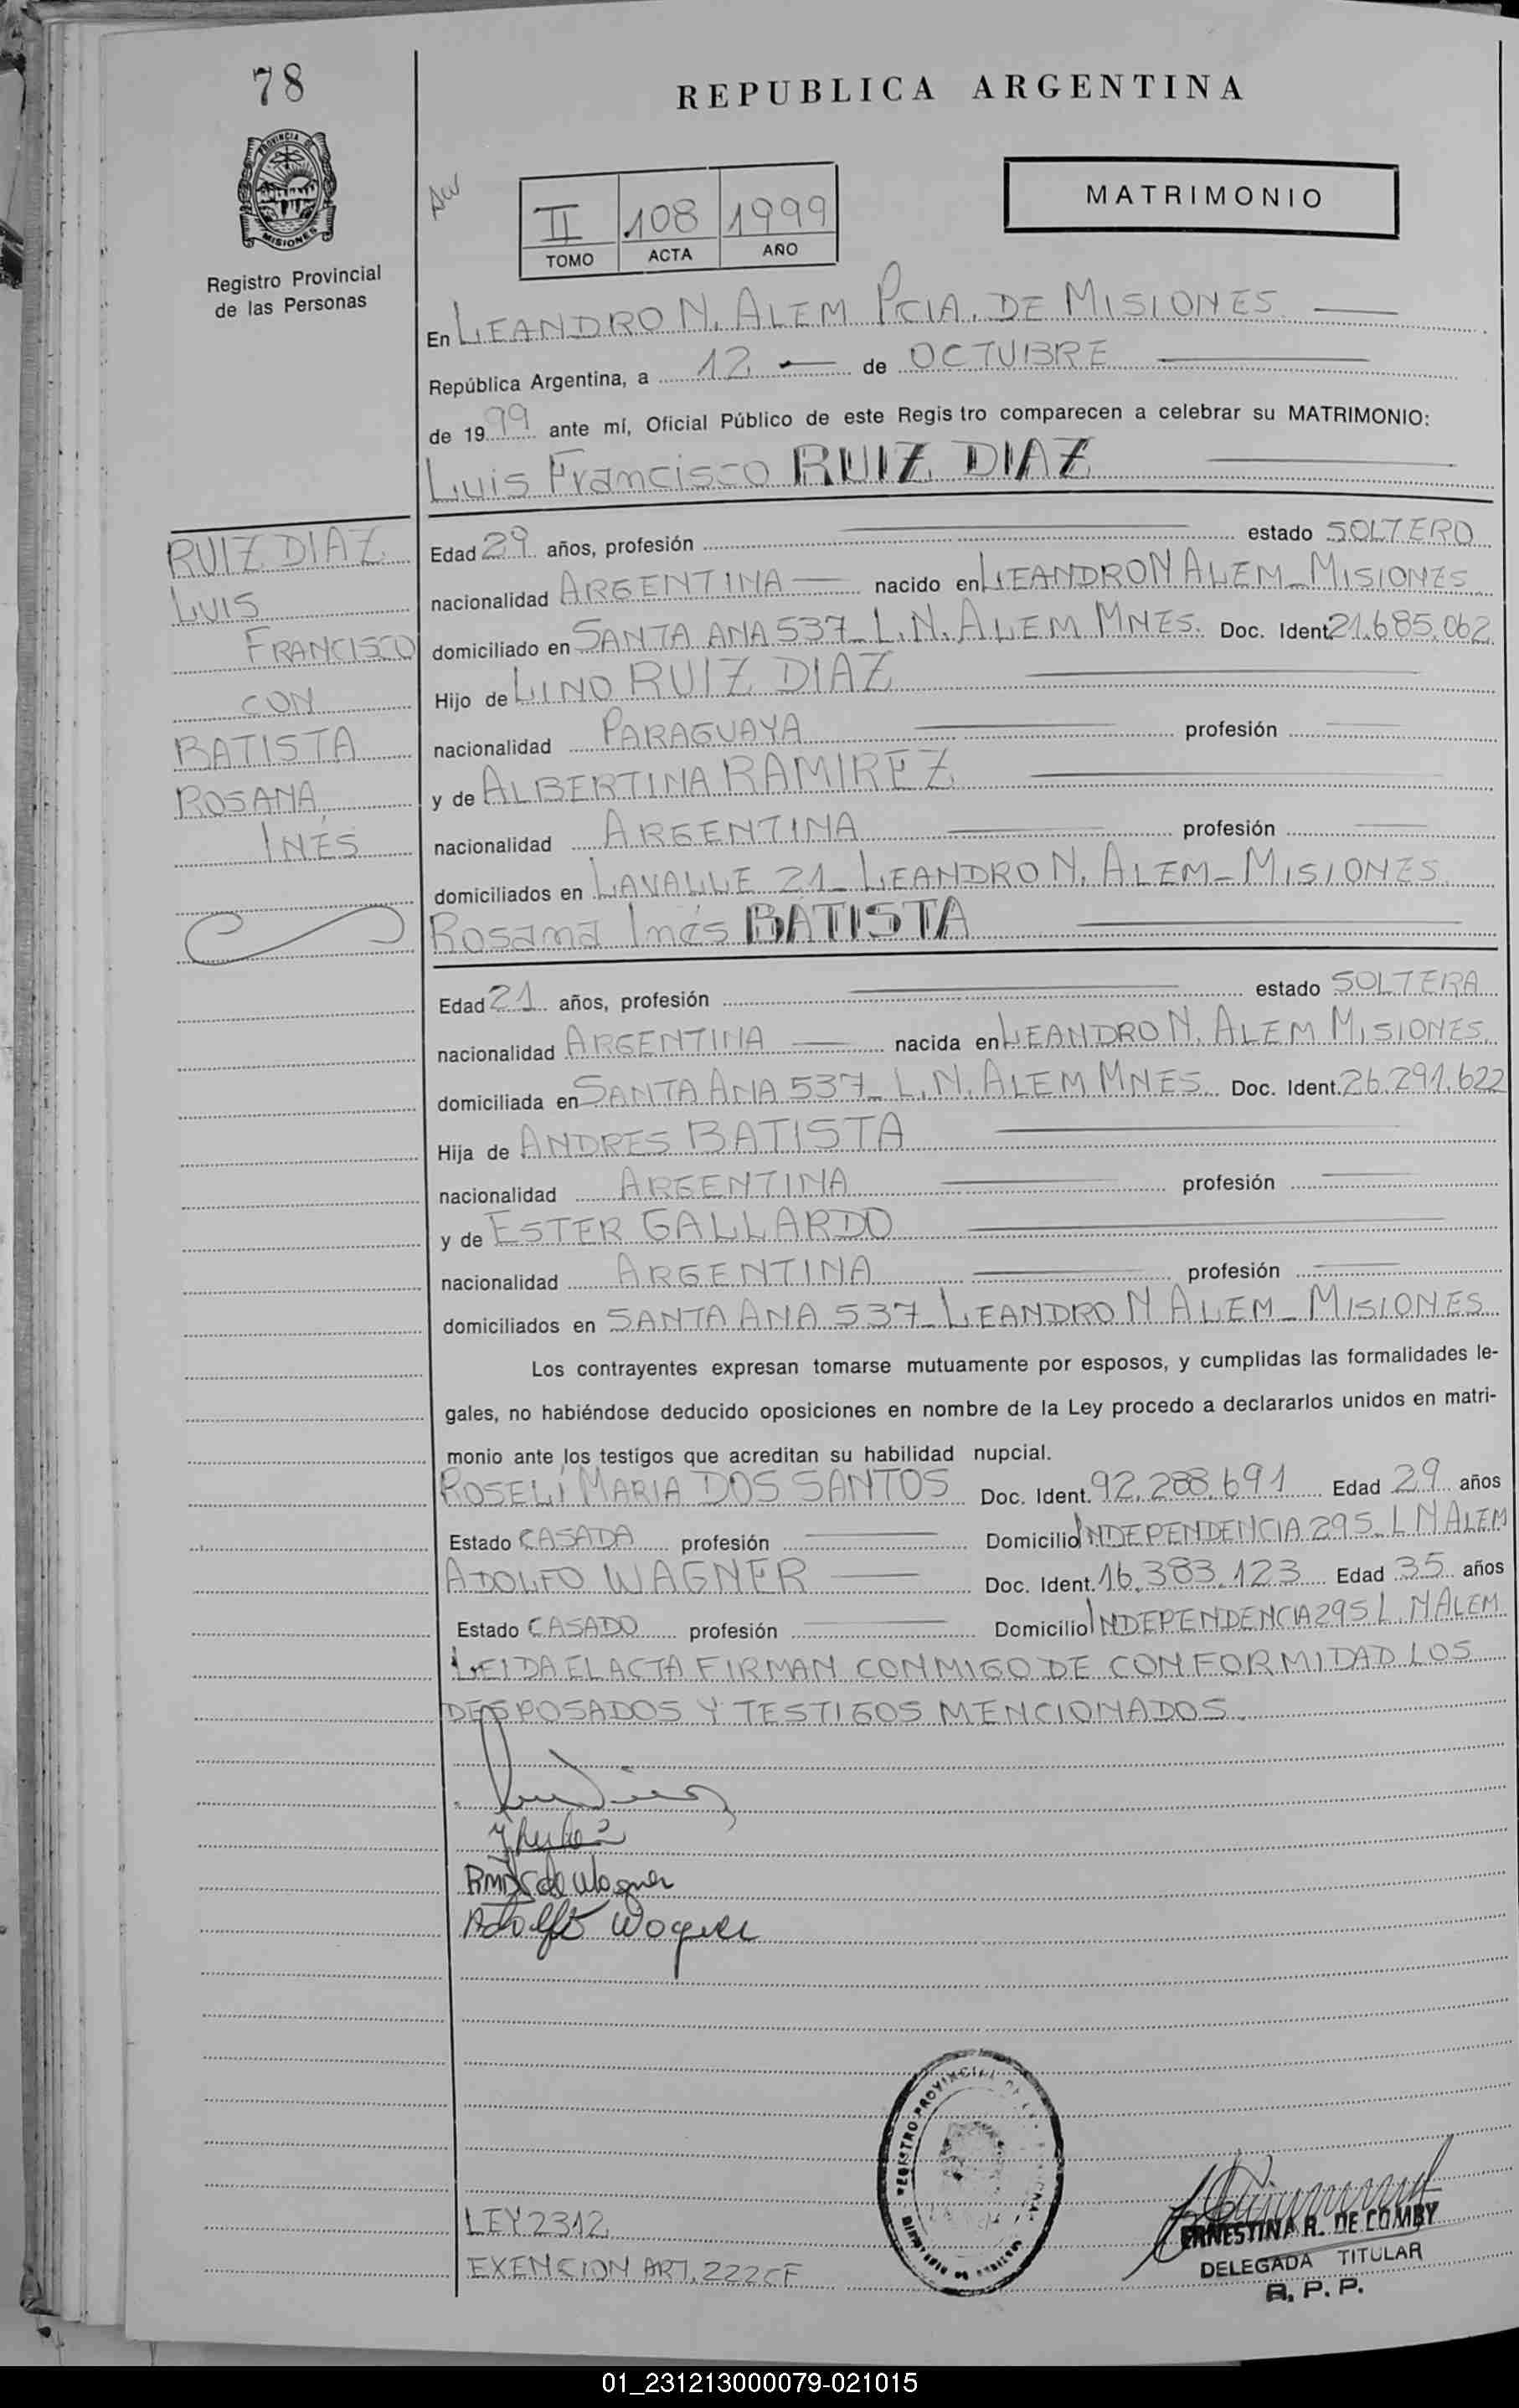 78
REPUBLICA ARGENTINA
PROVINCIA DE MISIONES
MATRIMONIO
II 108 1999
TOMO ACTA AÑO
Registro Provincial
de las Personas
En LEANDRO N. ALEM PCIA. DE MISIONES
República Argentina, a 12 de OCTUBRE
de 1999 ante mí, Oficial Público de este Regis tro comparecen a celebrar su MATRIMONIO:
Luis Francisco RUIZ DIAZ
RUIZ DIAZ
LUIS
FRANCISCO
CON
BATISTA
ROSANA
INÉS
Edad 29 años, profesión estado SOLTERO
nacionalidad ARGENTINA nacido en LEANDRO N ALEM - MISIONES
domiciliado en SANTA ANA 537 - L.N. ALEM MNES. Doc. Ident. 21.685.062
Hijo de LINO RUIZ DIAZ
nacionalidad PARAGUAYA profesión
y de ALBERTINA RAMIREZ
nacionalidad ARGENTINA profesión
domiciliados en LAVALLE 21 - LEANDRO N. ALEM - MISIONES
Rosana Inés BATISTA
Edad 21 años, profesión estado SOLTERA
nacionalidad ARGENTINA nacida en LEANDRO N. ALEM MISIONES
domiciliada en SANTA ANA 537 - L.N. ALEM MNES. Doc. Ident. 26.291.622
Hija de ANDRES BATISTA
nacionalidad ARGENTINA profesión
y de ESTER GALLARDO
nacionalidad ARGENTINA profesión
domiciliados en SANTA ANA 537 - LEANDRO N ALEM - MISIONES
Los contrayentes expresan tomarse mutuamente por esposos, y cumplidas las formalidades le-
gales, no habiéndose deducido oposiciones en nombre de la Ley procedo a declararlos unidos en matri-
monio ante los testigos que acreditan su habilidad nupcial.
ROSELÍ MARIA DOS SANTOS Doc. Ident. 92.288.691 Edad 29 años
Estado CASADA profesión Domicilio INDEPENDENCIA 295 - L N ALEM
ADOLFO WAGNER Doc. Ident. 16.383.123 Edad 35 años
Estado CASADO profesión Domicilio INDEPENDENCIA 295 L. N ALEM
LEIDA EL ACTA FIRMAN CONMIGO DE CONFORMIDAD LOS
DESPOSADOS Y TESTIGOS MENCIONADOS.
RMDS de Wagner
Adolfo Wagner
REGISTRO PROVINCIAL DE
LEY 2312
EXENCION ART. 222 CF
ERNESTINA R. DE COMBY
DELEGADA TITULAR
R. P. P.
01_231213000079-021015